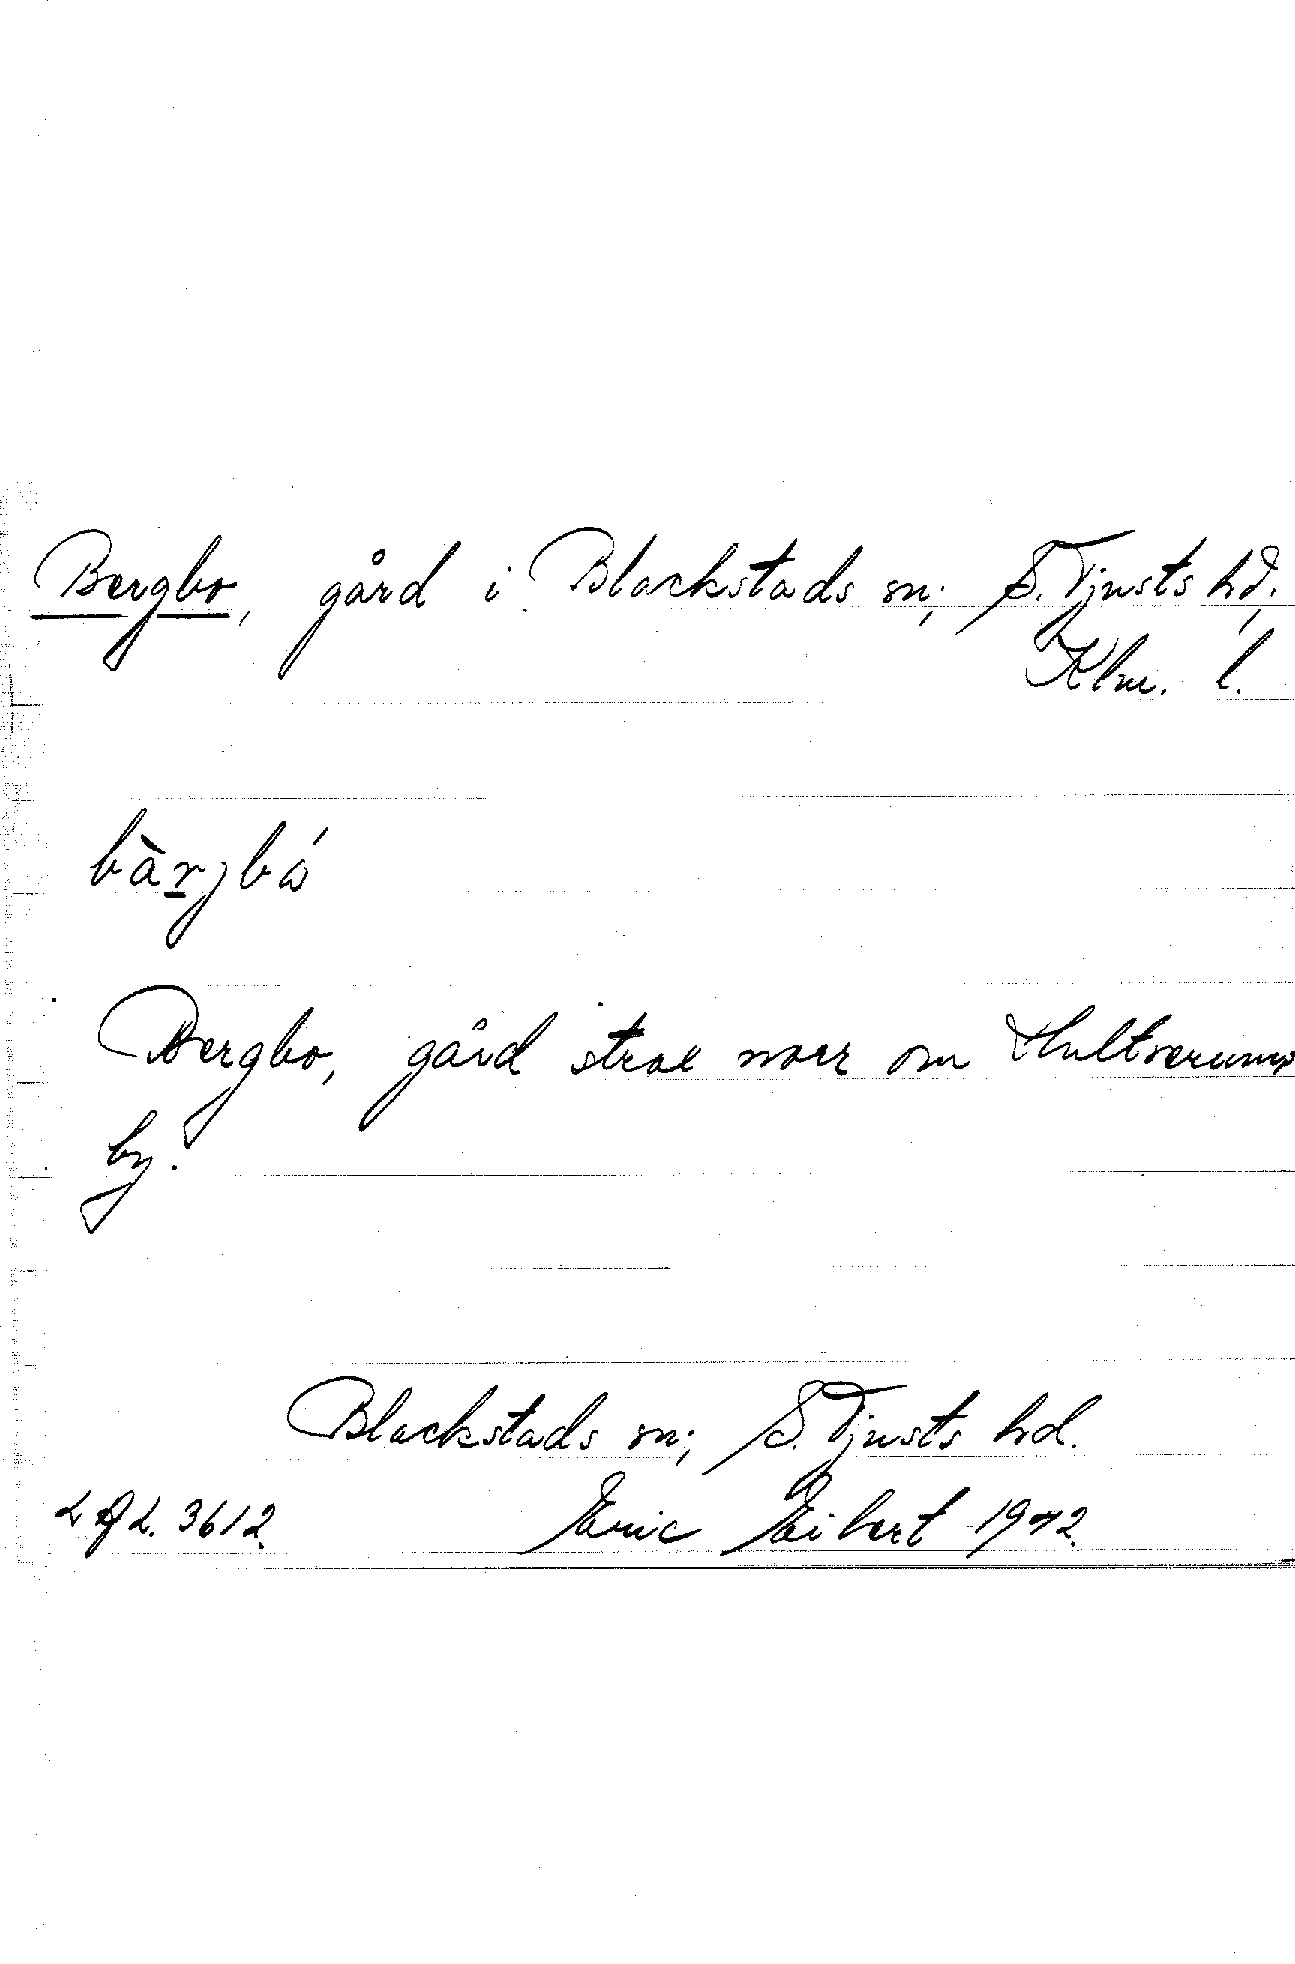 Bergbo, gård i Blackstads sn; S. Tjusts hd;
Klm. l.
bàrjbó
Bergbo, gård strax norr om Hultserums
by.
Blackstads sn; S. Tjusts hd.
3612. Eric Eibert 1942.